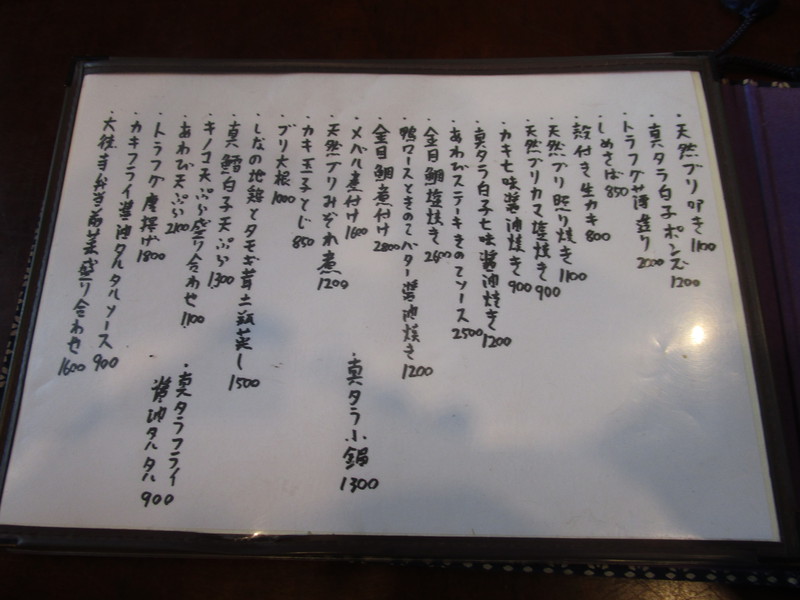 ・天然ブリ叩き 1100
・真タラ白子ポンズ 1200
・トラフグ薄造り 2000
・しめさば 850
・殻付き生カキ 800
・天然ブリ照り焼き 1100
・天然ブリカマ塩焼き 900
・カキ七味醤油焼き 900
・真タラ白子七味醤油焼き 1200
・あわびステーキきのこソース 2500
・金目鯛塩焼き 2600
・鴨ロースときのこバター醤油焼き 1200
・金目鯛煮付け 2800
・メバル煮付け 1600
・天然ブリみぞれ煮 1200
・カキ玉子とじ 850
・ブリ大根 1000
・しなの地鶏とタモギ茸土瓶蒸し 1500
・真鱈白子天ぷら 1300
・キノコ天ぷら盛り合わせ 1100
・あわび天ぷら 2100
・トラフグ唐揚げ 1800
・カキフライ醤油タルタルソース 900
・大徒寺弁当前菜盛り合わせ 1600
・真タラ小鍋 1300
・真タラフライ
醤油タルタル 900